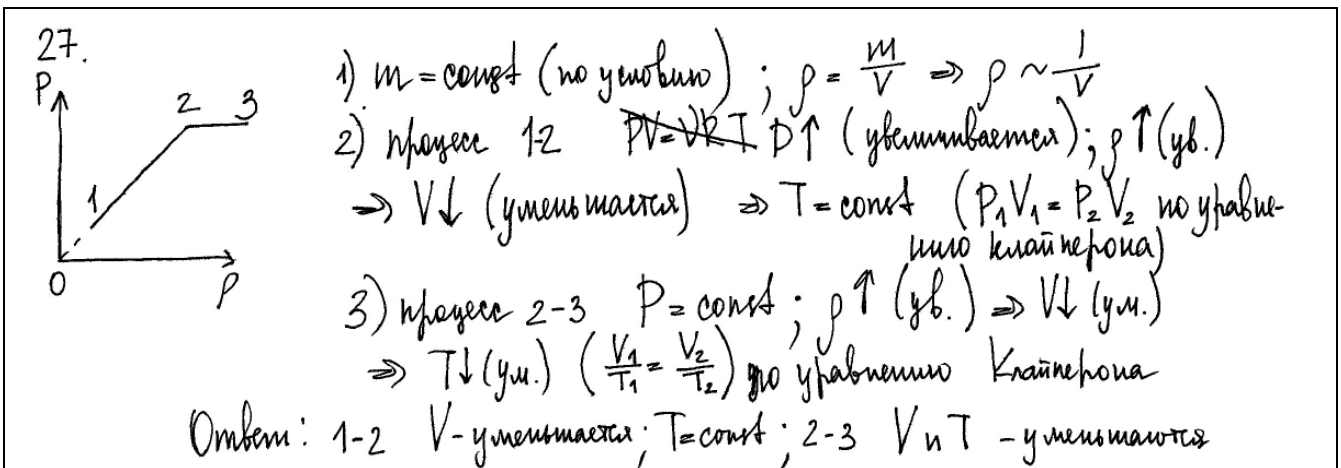 27.
P 2 3
1
0 ρ
1) m = const (по условию) ; ρ = m/V ⇒ ρ ~ 1/V
2) процесс 1-2 PV=νRT P↑ (увеличивается); ρ↑ (ув.)
⇒ V↓ (уменьшается) ⇒ T = const (P₁V₁ = P₂V₂ по уравне-
нию клайперона)
3) процесс 2-3 P = const ; ρ↑ (ув.) ⇒ V↓ (ум.)
⇒ T↓ (ум.) (V₁/T₁ = V₂/T₂) по уравнению Клайперона
Ответ: 1-2 V - уменьшается; T=const ; 2-3 V и T - уменьшаются